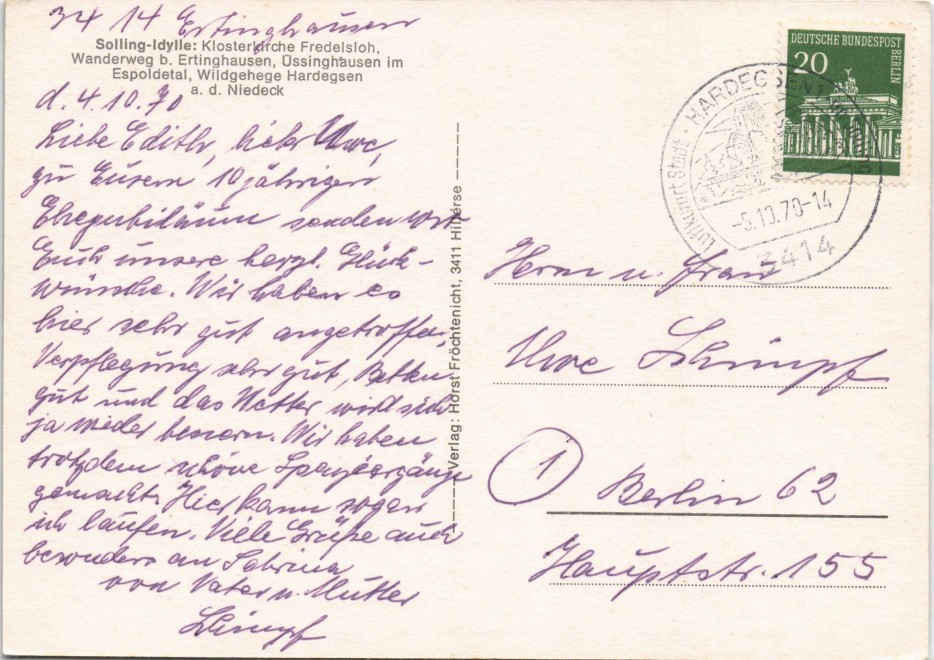 34 14 Ertinghausen
Solling-Idylle: Klosterkirche Fredelsloh,
Wanderweg b. Ertinghausen, Üssinghausen im
Espoldetal, Wildgehege Hardegsen
a. d. Niedeck
d. 4.10.70
Liebe Edith, lieber Uwe,
zu Eurem 10 jährigen
Ehejubiläum senden wir
Euch unsere herzl. Glück-
wünsche. Wir haben es
hier sehr gut angetroffen,
Verpflegung sehr gut, Betten
gut und das Wetter wird sich
ja wieder bessern. Wir haben
trotzdem schöne Spaziergänge
gemacht. Hier kann sogar
ich laufen. Viele Grüße auch
besonders an Sabrina
von Vater u. Mutter
Schimpf
Verlag: Horst Fröchtenicht, 3411 Hillerse
DEUTSCHE BUNDESPOST
BERLIN
20
HARDEGSEN
Luftkurort Stadt
-5.10.70-14
3414
Herrn u. Frau
Uwe Schimpf
1 Berlin 62
Hauptstr. 155